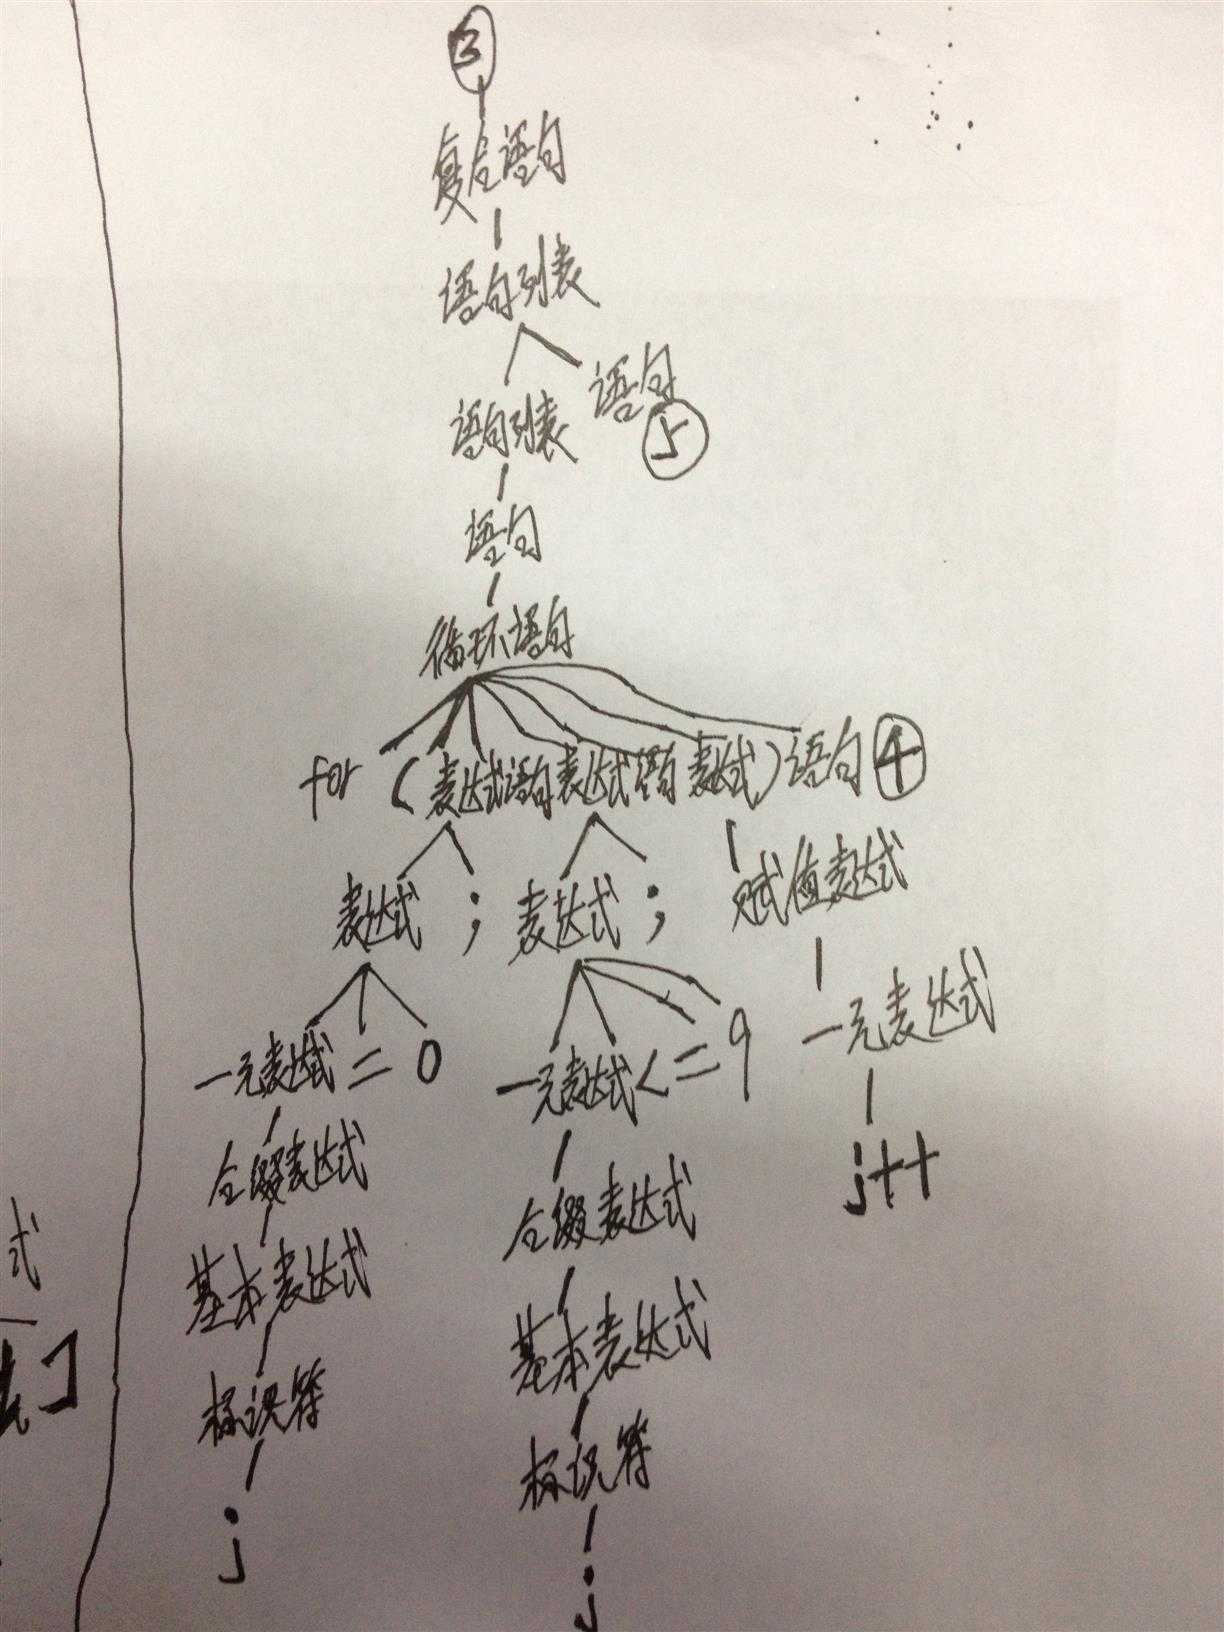 3
复合语句
语句列表
语句列表 语句
5
语句
循环语句
for (表达式语句 表达式语句 表达式) 语句 4
表达式 ; 表达式 ; 赋值表达式
一元表达式 = 0 一元表达式 <= 9 一元表达式
后缀表达式 后缀表达式 j++
基本表达式 基本表达式
标识符 标识符
j j
式
]